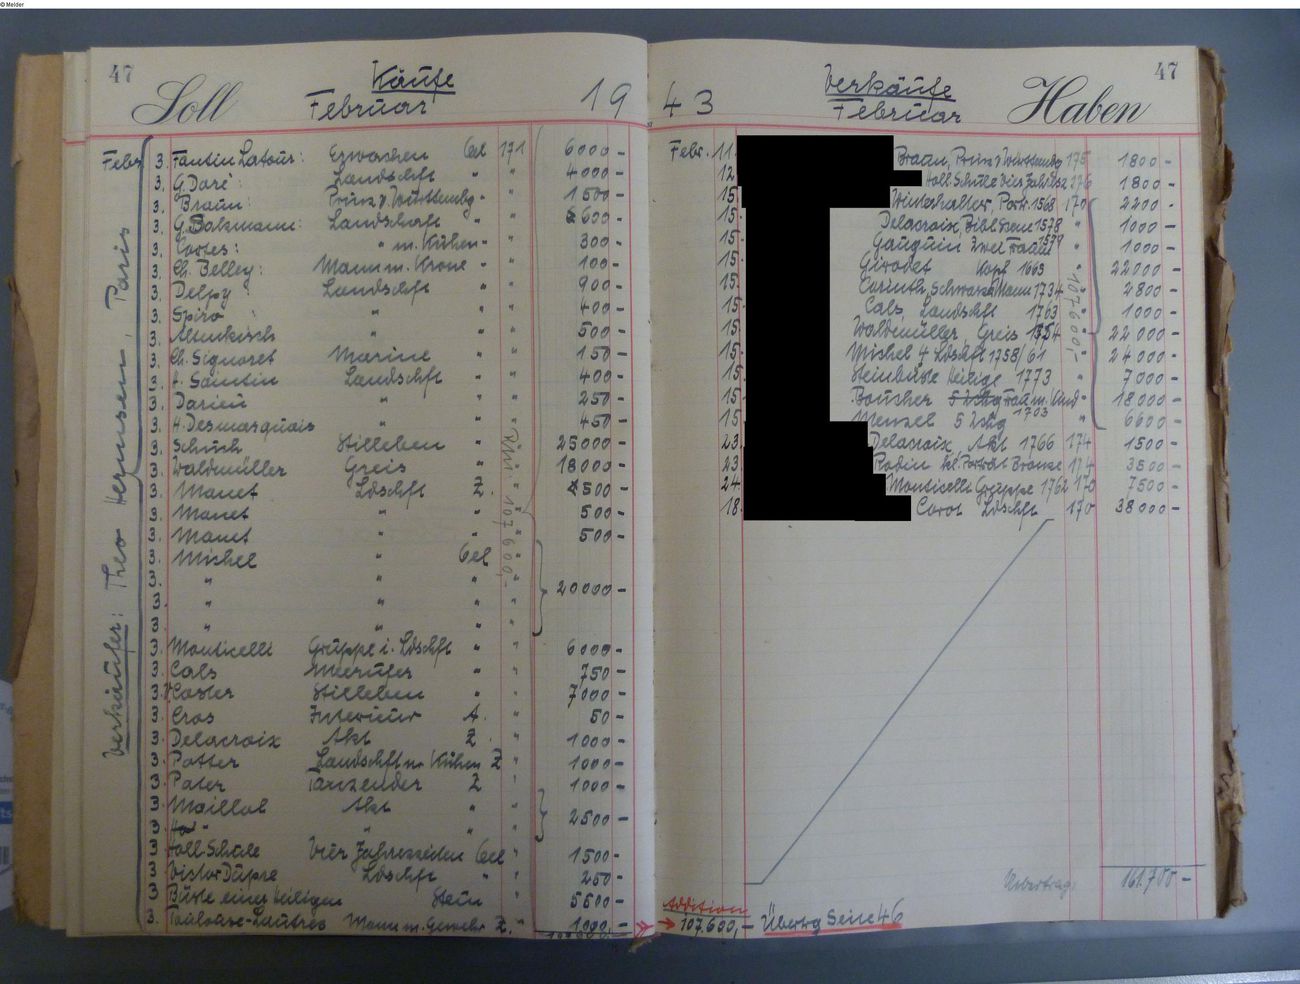 © Melder
47
Käufe
Soll Februar 19
Verkäufer: Theo Hermsen, Paris
Febr. 3. Fantin Latour: Erwachen Oel 171 6000 -
3. G. Doré: Landschaft " " 4000 -
3. Braun: Prinz v. Württembg " " 1500 -
3. Landschaft " " 600 -
3. Cortes: " m. Kühen " " 300 -
3. Ch. Belley: Mann m. Krone " " 100 -
3. Delpy: Landschft " " 900 -
3. Spiro: " " " 400 -
3. " " 500 -
3. Ch. Signoret Marine " " 150 -
3. Landschft " " 400 -
3. Darien " " " 250 -
3. H. Desmarquais " " " 450 -
3. Schuch Stilleben " " 25000 -
3. Waldmüller Greis " " 18000 -
3. Manet Ldschft Z. " 500 -
3. Manet " " " 500 -
3. Manet " " " 500 -
3. Michel " Oel "
3. " " " " 20000 -
3. " " " "
3. " " " "
RM 107600,-
3. Monticelli Gruppe i. Ldschft " " 6000 -
3. Cals Meerufer " " 750 -
3. Stilleben " " 7000 -
3. Cros Interieur A. " 50 -
3. Delacroix Akt Z. " 1000 -
3. Potter Landschft m Kühen Z " 1000 -
3. Pater Tanzender Z " 1000 -
3. Maillol Akt " "
3. " " " " 2500 -
3. Holl. Schule Vier Jahreszeiten Oel " 1500 -
3. Victor Dupré Ldschft " " 250 -
3. Büste einer Heiligen Stein 5500 -
3. Toulouse-Lautrec Mann m. Gewehr Z. " 1000,-
47
Verkäufe
43 Februar Haben
Febr. 11. Braun, Prinz v. Württembg 175 1800 -
12 Holl. Schule Vier Jahresz 176 1800 -
15. Winterhalter, Portr. 1568 170 2200 -
15. Delacroix, Bibl. Szene 1578 " 1000 -
15. Gauguin Zwei Frauen 1579 " 1000 -
15. Girodet Kopf 1663 22000 -
15. Corinth, Schwarzer Mann 1734 " 2800 -
15. Cals, Landschft 1763 " 1000 -
15. Waldmüller, Greis 1754 " 22000 -
15. Michel 4 Ldschft 1758/61 24000 -
15. Steinbüste Heilige 1773 " 7000 -
15. Boucher Frau m. Kind " 18000 -
15. Menzel 5 Zchg 1703 " 6600 -
107600,-
23. Delacroix, Akt 1766 174 1500 -
23. Rodin kl. Porträt Bronze 174
24. Monticelli Gruppe 1762 170 7500 -
18. Corot Ldschft 170 38000 -
Uebertrag: 161.700 -
Addition
→ 107.600,- Übertrg Seite 46